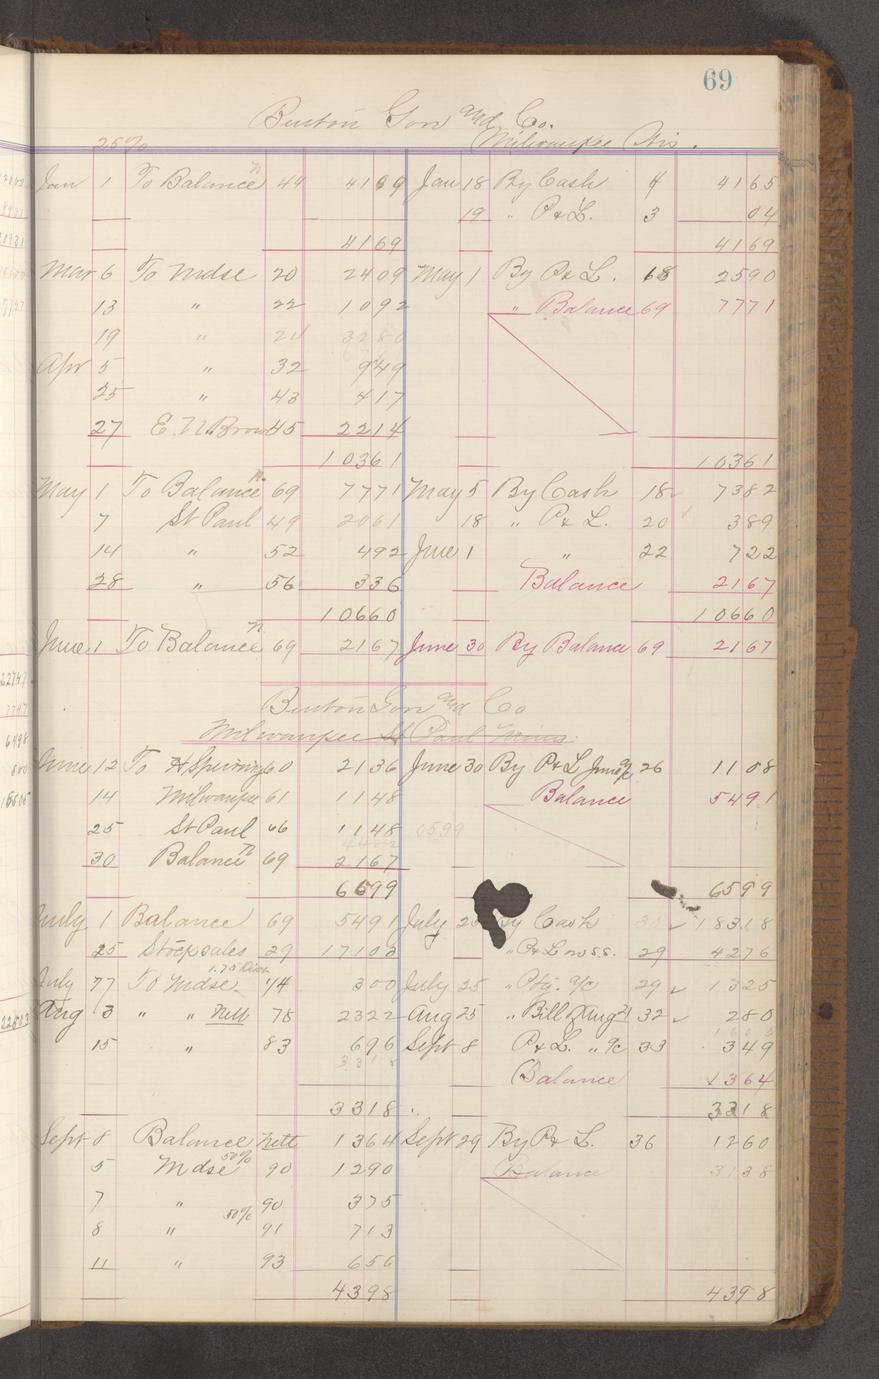 69
Burton Gon and Co.
25% Milwaukee Wis.
Jan 1 To Balance n 44 4169 Jan 18 By Cash 4 4165
19 " P & L. 3 04
4169 4169
Mar 6 To Mdse 20 2409 May 1 By P & L. 68 2590
13 " 22 1092 " Balance 69 7771
19 " 24 3280
Apr 5 " 32 949
25 " 43 417
27 E. N. Brown 45 2214
10361 10361
May 1 To Balance n. 69 7771 May 5 By Cash 18 7382
7 St Paul 49 2061 18 " P & L. 20 389
14 " 52 492 June 1 " 22 722
28 " 56 336 Balance 2167
10660 10660
June 1 To Balance n 69 2167 June 30 By Balance 69 2167
Burton Gon and Co
Milwaukee St Paul Minn
June 12 To 60 2136 June 30 By P & L June a/c 26 1108
14 Milwaukee 61 1148 Balance 5491
25 St Paul 66 1148 6599
30 Balance n 69 2167
6599 6599
July 1 Balance 69 5491 July 25 By Cash 18318
25 Stock sales 29 17103 " P & L 29 4276
July 77 To Mdse 1.75 Disc 74 300 July 25 " a/c 29 1325
Aug 3 " " Nett 78 2322 Aug 25 " Bill Aug 21 32 280
15 " 83 696 Sept 8 P & L. " a/c 33 349
3318
Balance 1364
3318 3318
Sept 8 Balance Nett 1364 Sept 29 By P & L. 36 1260
5 Mdse 50% 90 1290 Balance 3138
7 " 90 375
8 " 50% 91 713
11 " 93 656
4398 4398